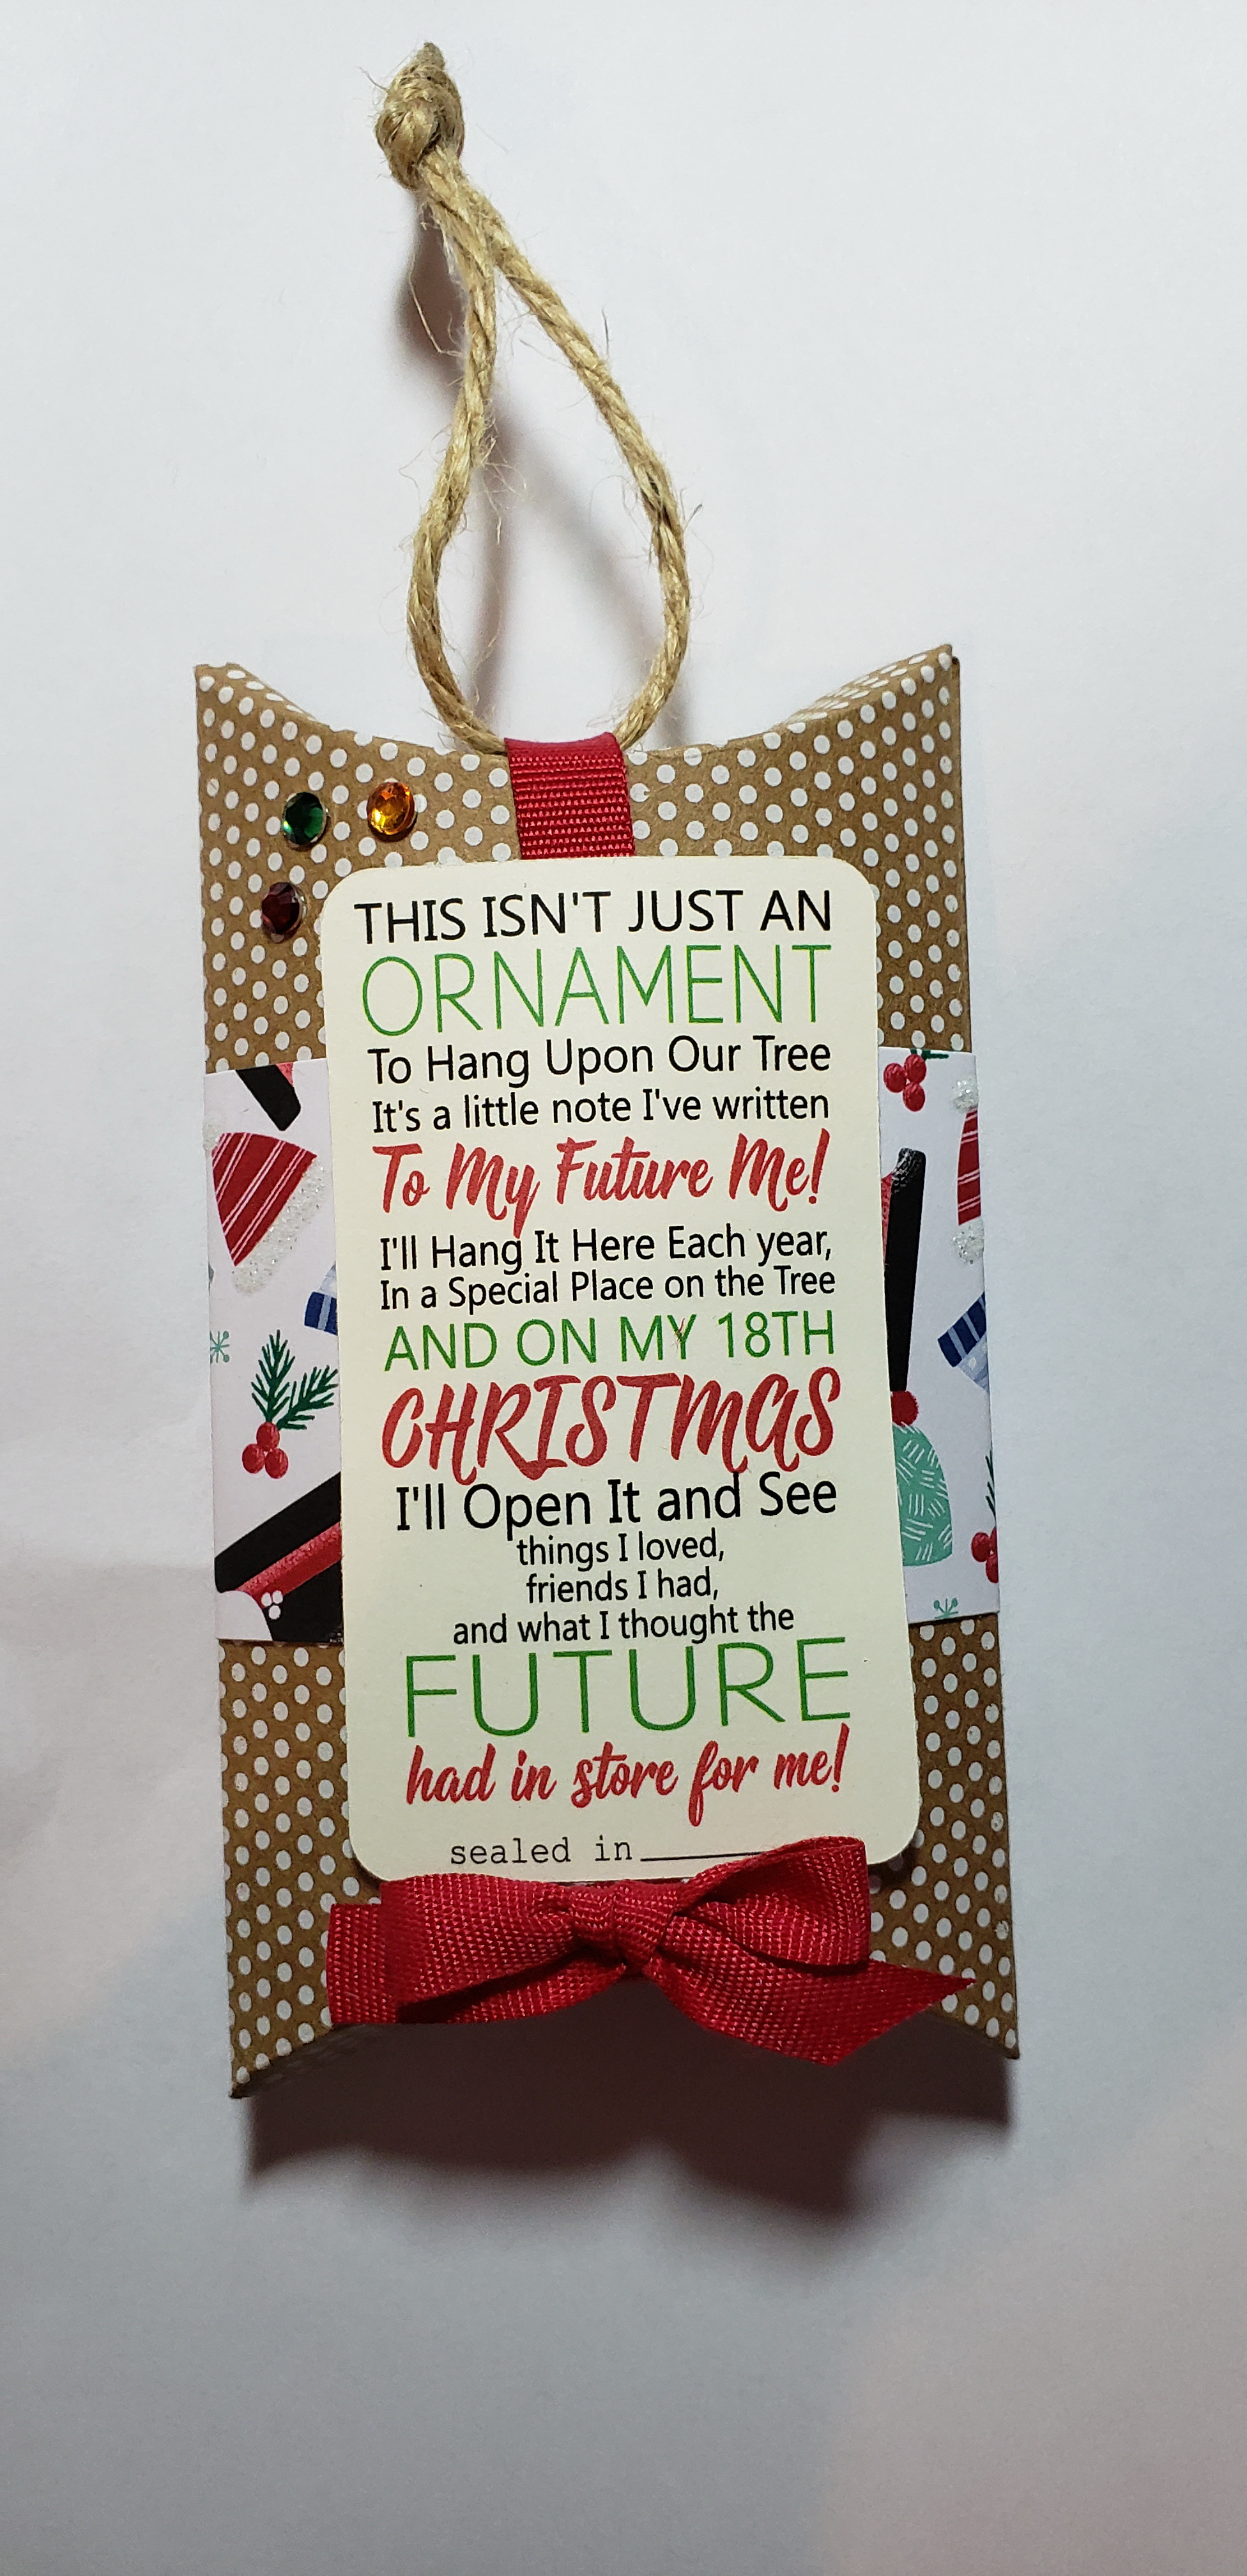 THIS ISN'T JUST AN
ORNAMENT
To Hang Upon Our Tree
It's a little note I've written
To My Future Me!
I'll Hang It Here Each year,
In a Special Place on the Tree
AND ON MY 18TH
CHRISTMAS
I'll Open It and See
things I loved,
friends I had,
and what I thought the
FUTURE
had in store for me!
sealed in